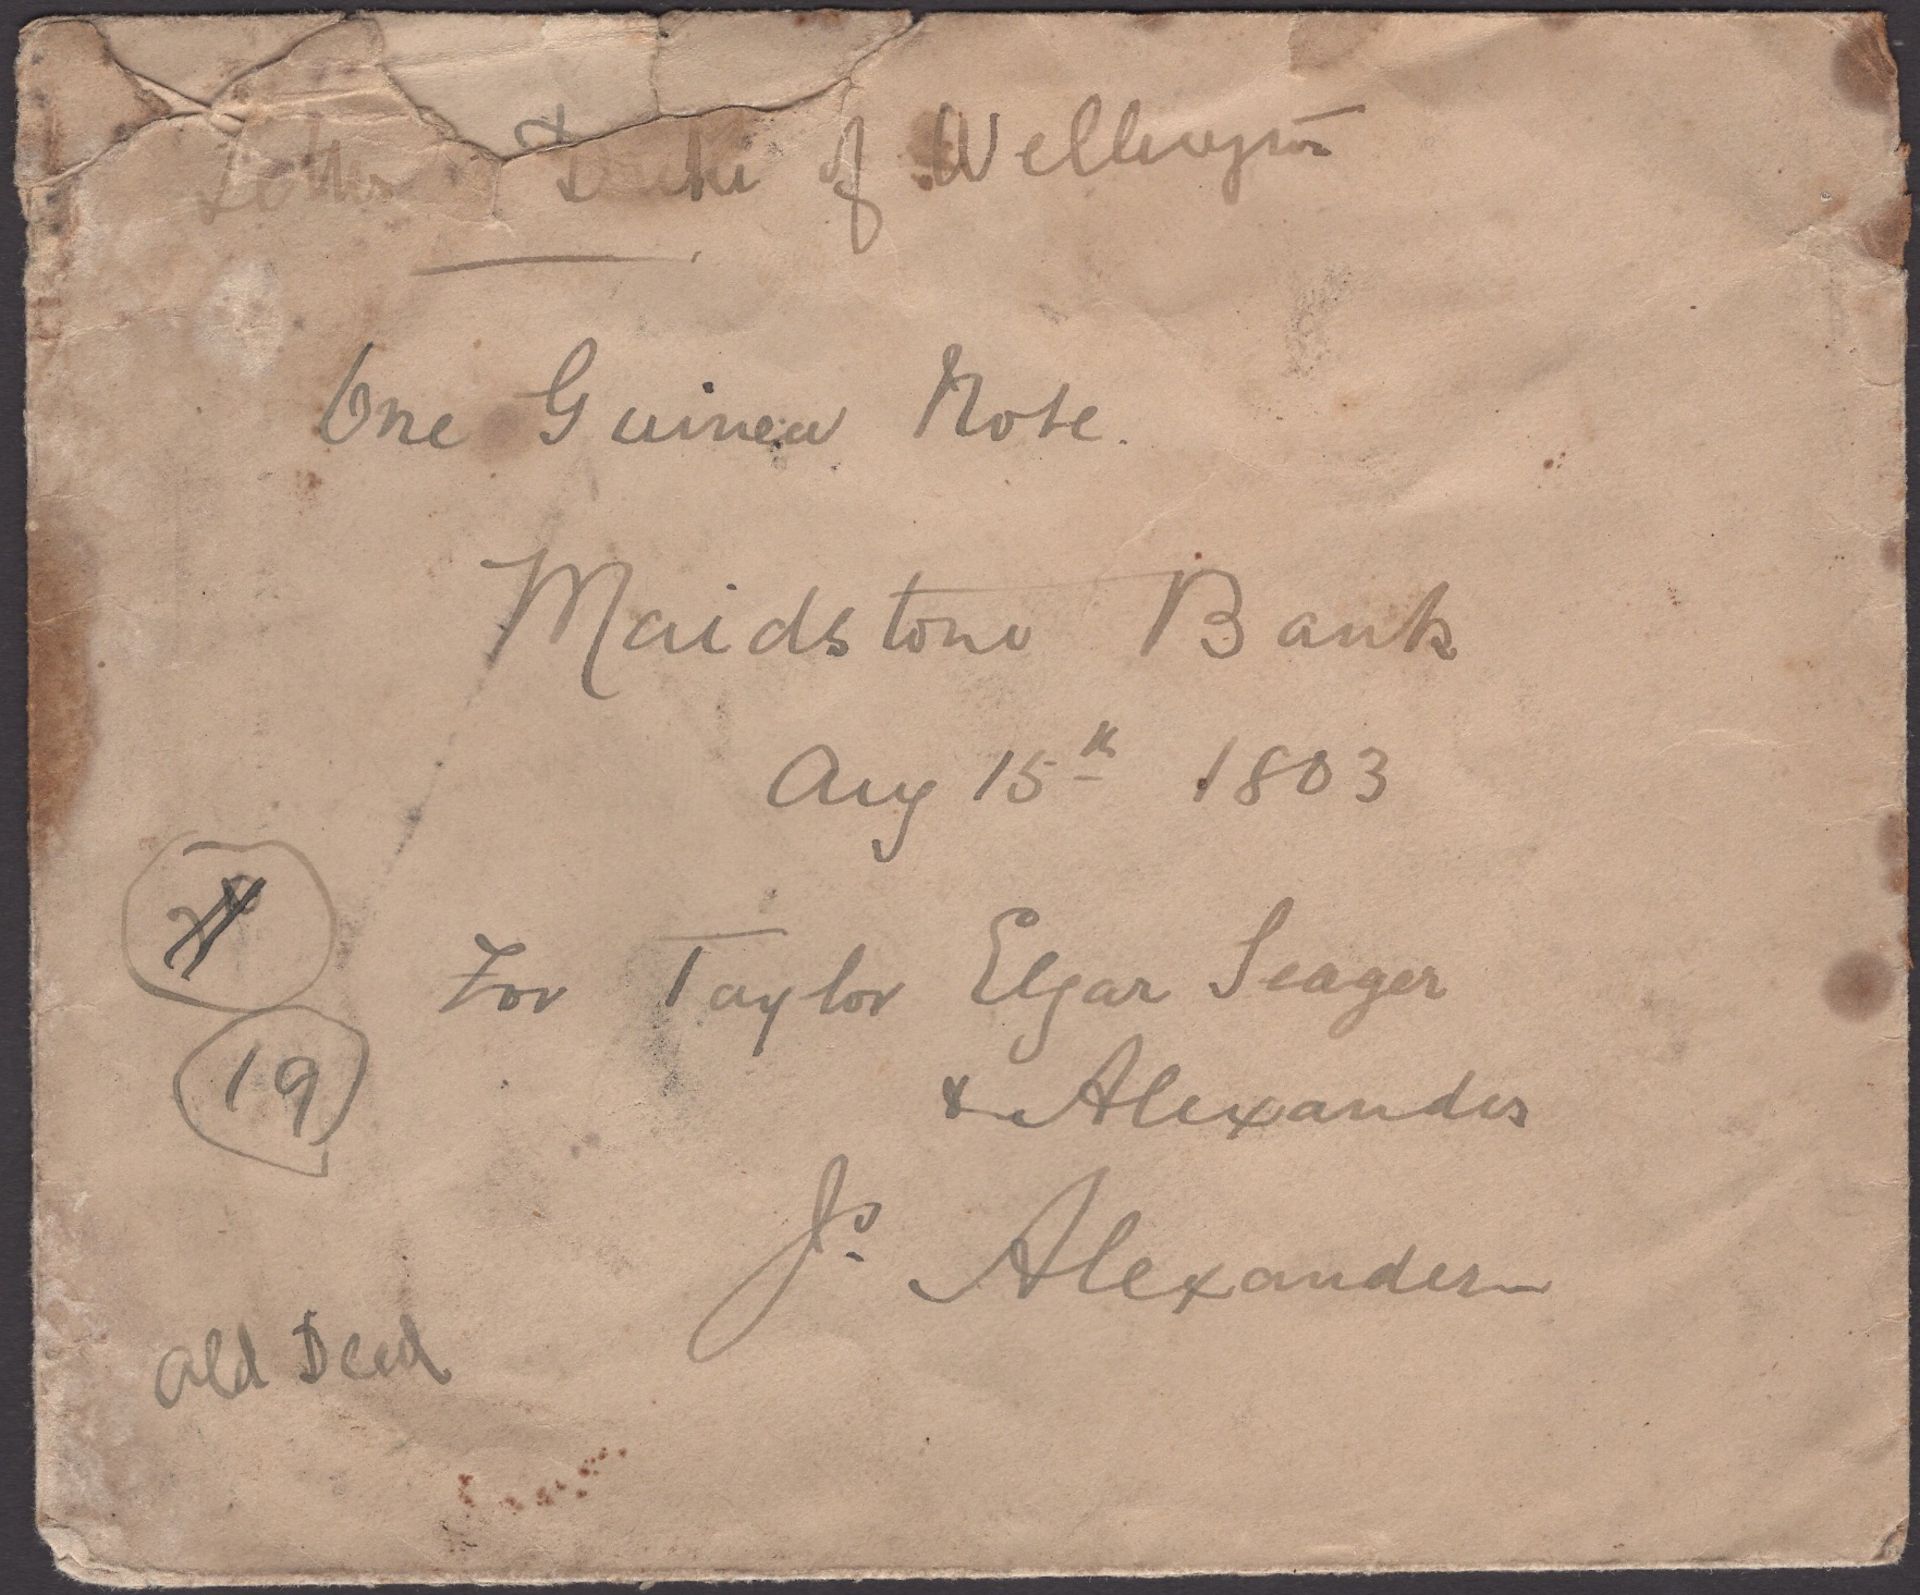 Letter Duke of Wellington
One Guinea Note.
Maidstone Bank
Aug 15th 1803
For Taylor Elgar Seager
& Alexander
19
Js. Alexander
Old Deed